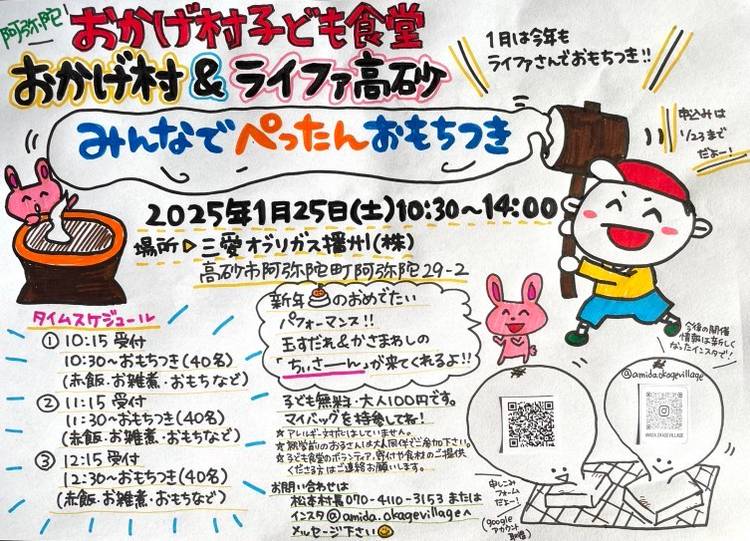 阿弥陀
おかげ村子ども食堂
おかげ村&ライファ高砂
1月は今年も
ライファさんでおもちつき!!
みんなでぺったんおもちつき
申込みは
1/23まで
だよー!
2025年1月25日(土)10:30~14:00
場所▷三愛オブリガス播州(株)
高砂市阿弥陀町阿弥陀29-2
タイムスケジュール
① 10:15 受付
10:30~おもちつき(40名)
(赤飯・お雑煮・おもちなど)
② 11:15 受付
11:30~おもちつき(40名)
(赤飯・お雑煮・おもちなど)
③ 12:15 受付
12:30~おもちつき(40名)
(赤飯・お雑煮・おもちなど)
新年のおめでたい
パフォーマンス!!
玉すだれ&かさまわしの
「ちぃさーん」が来てくれるよ!!
子ども無料・大人100円です。
マイバッグを持参してね!
☆アレルギー対応はしていません。
☆就学前のお子さんは大人同伴でご参加下さい。
☆子ども食堂のボランティア、寄付や食材のご提供
くださる方はご連絡お願いします。
お問い合わせは
松本村長070-4110-3153または
インスタ@amida.okagevillageへ
メッセージ下さい
今後の開催
情報は新しく
なったインスタで!
@amida.okagevillage
申しこみ
フォーム
だよー!
(google
アカウント
取得)